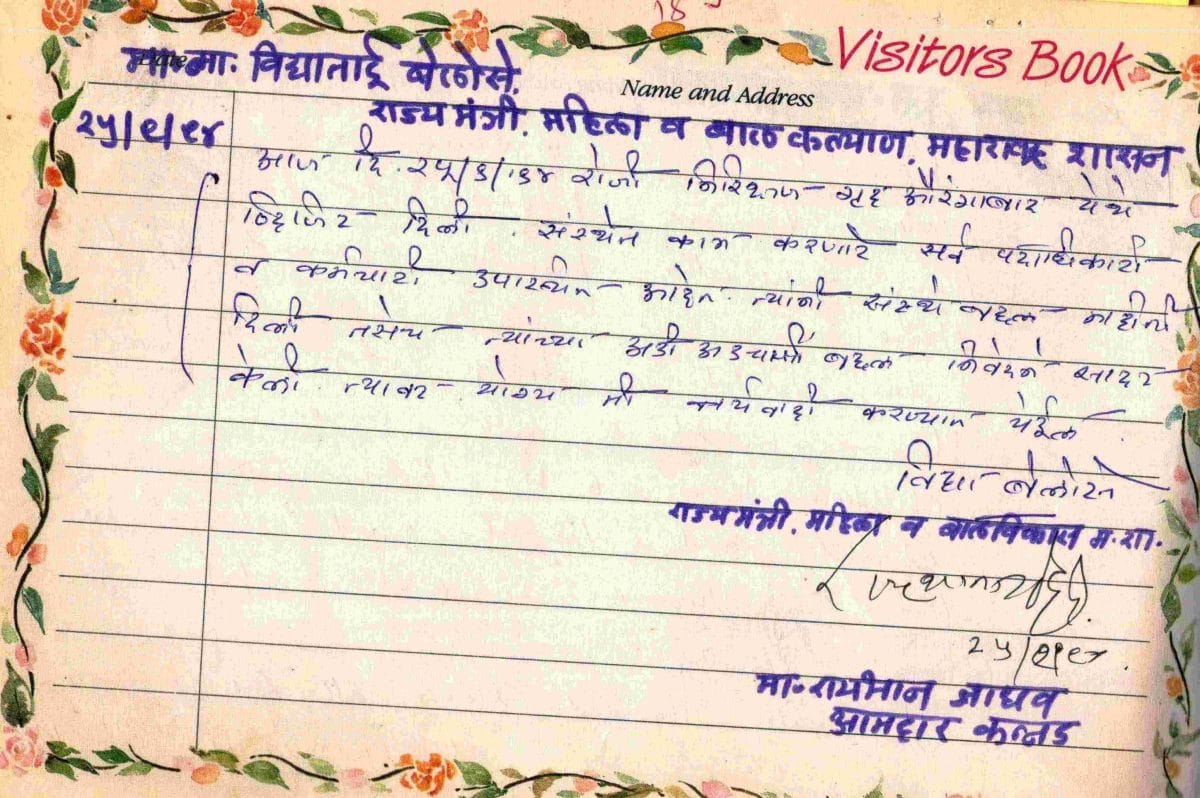 18
Visitors Book
मा. विद्याताई बेलोसे.
Name and Address
राज्य मंत्री. महिला व बाल कल्याण, महाराष्ट्र शासन
२५/९/९४
आज दि. २५/९/९४ रोजी निरिक्षण गृह औरंगाबाद येथे
व्हिजिट दिली. संस्थेत काम करणारे सर्व पदाधिकारी
व कर्मचारी उपास्थीत आहेत. त्यांनी संस्थे बद्दल माहीती
दिली तसेच त्यांच्या अडी अडचणीं बद्दल निवेदने सादर
केली. त्यावर योग्य ती कार्यवाही करण्यात येईल.
विद्या बेलोसे
राज्यमंत्री. महिला व बालविकास म.शा.
२५/९/९४.
मा. रायभान जाधव
आमदार कन्नड